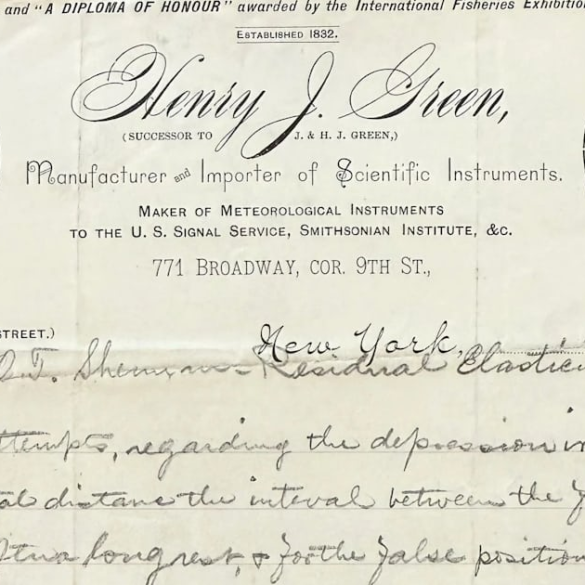 and "A DIPLOMA OF HONOUR" awarded by the International Fisheries Exhibition
ESTABLISHED 1832.
Henry J. Green,
(SUCCESSOR TO J. & H. J. GREEN,)
Manufacturer and Importer of Scientific Instruments.
MAKER OF METEOROLOGICAL INSTRUMENTS
TO THE U. S. SIGNAL SERVICE, SMITHSONIAN INSTITUTE, &C.
771 BROADWAY, COR. 9TH ST.,
STREET.)
New York,
Residual Elastici
ttempts, regarding the depression in
al distance the interval between the
long rest, & for the false position